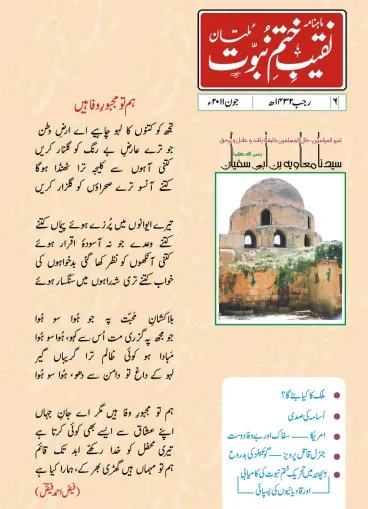 ماہنامہ
نقیبِ ختمِ نبوّت ملتان
۶ رجب ۱۴۳۲ھ جون ۲۰۱۱ء
امیر المؤمنین، خال المسلمین خلیفۂ راشد و عادل و برحق
سیدنا معاویہ بن ابی سفیان رضی اللہ عنہما
ہم تو مجبورِ وفا ہیں
تجھ کو کتنوں کا لہو چاہیے اے ارضِ وطن
جو ترے عارضِ بے رنگ کو گلنار کریں
کتنی آہوں سے کلیجہ ترا ٹھنڈا ہوگا
کتنے آنسو ترے صحراؤں کو گلزار کریں
تیرے ایوانوں میں پرزے ہوئے پیماں کتنے
کتنے وعدے جو نہ آسودۂ اقرار ہوئے
کتنی آنکھوں کو نظر کھا گئی بدخواہوں کی
خواب کتنے تری شہ راہوں میں سنگسار ہوئے
بلاکشانِ محبّت پہ جو ہُوا سو ہُوا
جو مجھ پہ گزری مت اُس سے کہو، ہُوا سو ہُوا
مبادا ہو کوئی ظالم ترا گریباں گیر
لہو کے داغ تو دامن سے دھو، ہُوا سو ہُوا
ہم تو مجبورِ وفا ہیں مگر اے جانِ جہاں
اپنے عشّاق سے ایسے بھی کوئی کرتا ہے
تیری محفل کو خدا رکھے ابد تک قائم
ہم تو مہماں ہیں گھڑی بھر کے، ہمارا کیا ہے
(فیض احمد فیضؔ)
ملک کا کیا بنے گا؟
اُسامہ کی صدی
امریکا — سفاک اور بے وفا دوست
جنرل قاتل پرویز — گوئبلز کی بدروح
چیچند میں تحریکِ ختمِ نبوت کی کامیابی
اور قادیانیوں کی پسپائی